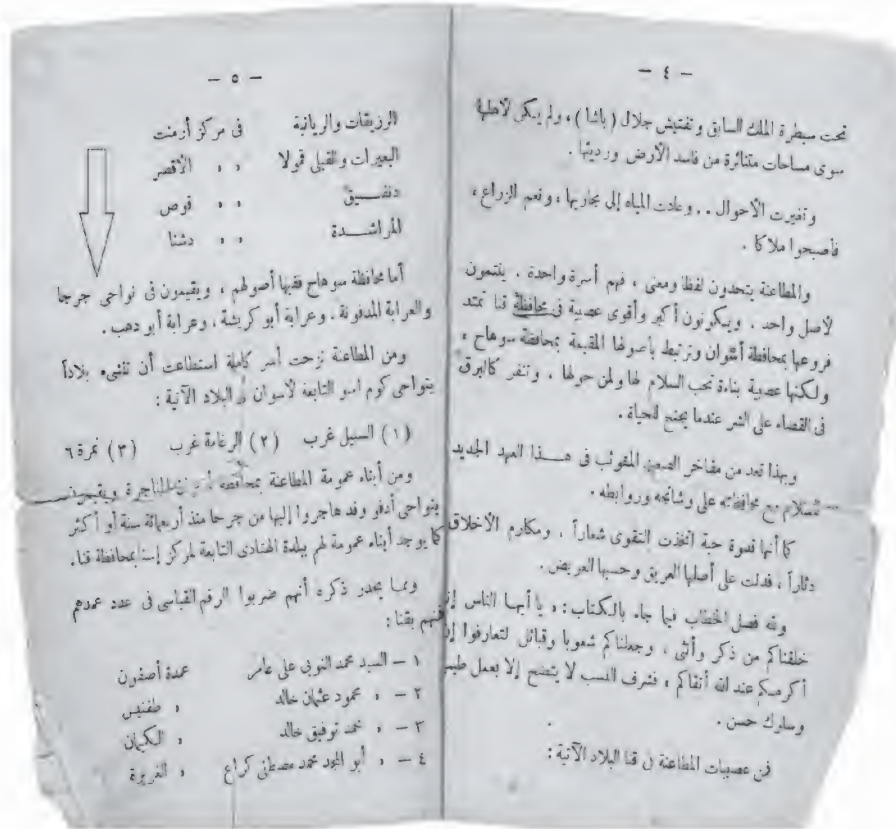 — ٤ —
تحت سيطرة الملك السابق وتفتيش جلال ( باشا ) ، ولم يكن لأهلها
سوى مساحات متناثرة من فاسد الأرض ورديئها .
وتغيرت الأحوال . . وعادت المياه إلى مجاريها ، ونعم الزراع ،
فأصبحوا ملاكا .
والمطاعنة يتحدون لفظا ومعنى ، فهم أسرة واحدة . ينتمون
لأصل واحد . ويكونون أكبر وأقوى عصبية في محافظة قنا تمتد
فروعها بمحافظة أسوان وترتبط بأصولها المقيمة بمحافظة سوهاج ،
ولكنها عصبية بناءة تحب السلام لها ولمن حولها ، وتنفر كالبرق
في القضاء على الشر عندما يجنح للحياة .
وبهذا تعد من مفاخر الصعيد المتوثب في هذا العهد الجديد
للسلام مع محافظاته على وشائجه وروابطه .
كما أنها قدوة حية اتخذت التقوى شعاراً ، ومكارم الأخلاق
دثاراً ، فدلت على أصلها العريق وحسبها العريض .
ولله فصل الخطاب فيما جاء بالكتاب : « يا أيها الناس إنا
خلقناكم من ذكر وأنثى ، وجعلناكم شعوبا وقبائل لتعارفوا إن
أكرمكم عند الله أتقاكم » فشرف النسب لا يتضح إلا بعمل طيب
وسلوك حسن .
فمن عصبيات المطاعنة في قنا البلاد الآتية :
— ٥ —
الرزيقات والريانية في مركز أرمنت
البعيرات والقبلى قمولا « « الأقصر
دنفيق « « قوص
المراشدة « « دشنا
أما محافظة سوهاج ففيها أصولهم ، ويقيمون في نواحى جرجا
والعرابة المدفونة . وعرابة أبو كريشة ، وعرابة أبو دهب .
ومن المطاعنة نزحت أسر كاملة استطاعت أن تنشىء بلاداً
بنواحى كوم امبو التابعة لأسوان في البلاد الآتية :
(١) السبيل غرب (٢) الرغامة غرب (٣) نمرة ٦
ومن أبناء عمومة المطاعنة بمحافظة ويقيمون
بنواحى أدفو وقد هاجروا إليها من جرجا منذ أربعمائة سنة أو أكثر
كما يوجد أبناء عمومة لهم ببلدة الهنادى التابعة لمركز إسنا بمحافظة قنا .
ومما يجدر ذكره أنهم ضربوا الرقم القياسى في عدد عمدهم
فمنهم بقنا :
١ — السيد محمد النوبى على عامر عمدة أصفون
٢ — « محمود عثمان خالد « طفنيس
٣ — « محمد توفيق خالد « الكيمان
٤ — « أبو المجد محمد مصطفى كراع « الغريرة